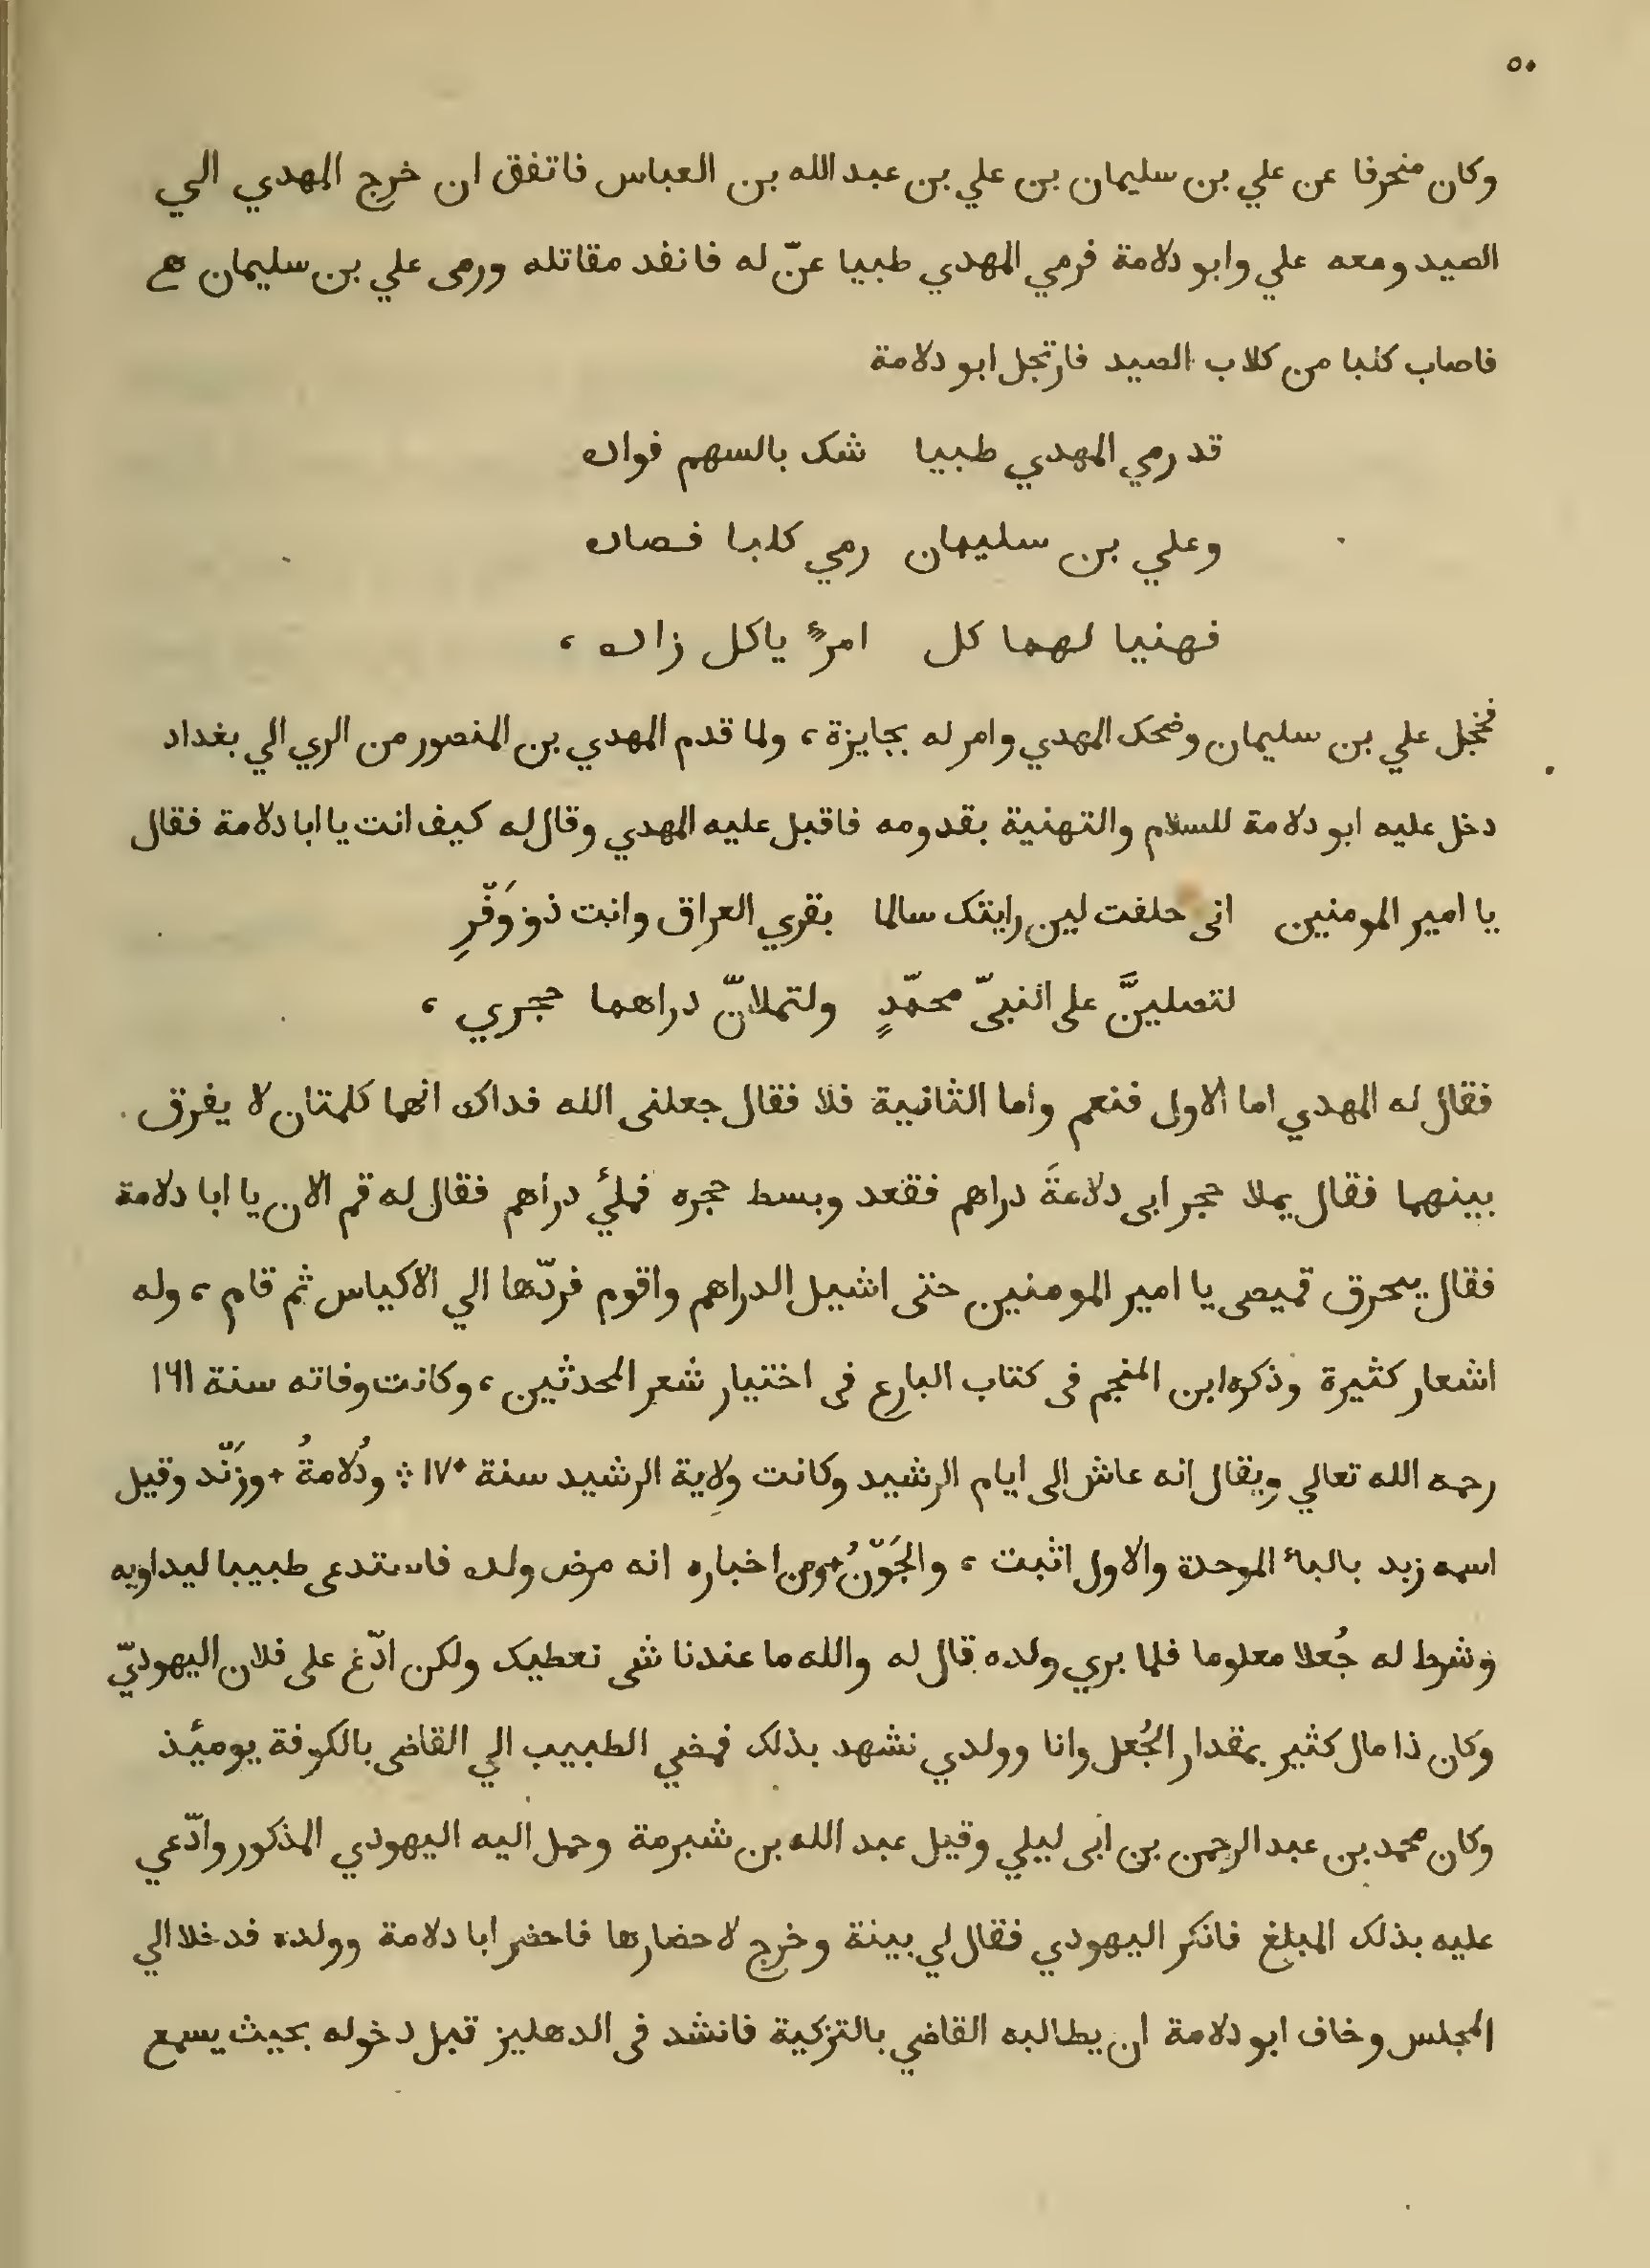 ٥٠
وكان منحرفا عن علي بن سليمان بن علي بن عبد الله بن العباس فاتفق ان خرج المهدي الي
الصيد ومعه علي وابو دلامة فرمي المهدي طبيا عنّ له فانفد مقاتله ورمى علي بن سليمان
فاصاب كلبا من كلاب الصيد فارتجل ابو دلامة
قد رمي المهدي طبيا شك بالسهم فواده
وعلي بن سليمان رمي كلبا فصاده
فهنيا لهما كل امرئٍ ياكل زاده ،
فخجل علي بن سليمان وضحك المهدي وامر له بجايزة ، ولما قدم المهدي بن المنصور من الري الي بغداد
دخل عليه ابو دلامة للسلام والتهنية بقدومه فاقبل عليه المهدي وقال له كيف انت يا ابا دلامة فقال
يا امير المومنين اني حلفت لين رايتك سالما بقري العراق وانت ذو وَفْرِ
لتصلينَّ على النبىّ محمّدٍ ولتملانّ دراهما حجري ،
فقال له المهدي اما الاول فنعم واما الثانية فلا فقال جعلنى الله فداك انهما كلمتان لا يفرق
بينهما فقال يملا حجر ابى دلامةَ دراهم فقعد وبسط حجره فملئ دراهم فقال له قم الان يا ابا دلامة
فقال يحرق قميصى يا امير المومنين حتى اشيل الدراهم واقوم فردّها الي الاكياس ثم قام ، وله
اشعار كثيرة وذكره ابن المنجم فى كتاب البارع فى اختيار شعر المحدثين ، وكانت وفاته سنة ١٦١
رحمه الله تعالي ويقال انه عاش الى ايام الرشيد وكانت ولاية الرشيد سنة ١٧٠ ؛ ودُلامةُ + وزَنْد وقيل
اسمه زبد بالباء الموحدة والاول اثبت ، والجَوْنُ + ومن اخباره انه مرض ولده فاستدعى طبيبا ليداويه
وشرط له جُعلا معلوما فلما بري ولده قال له والله ما عندنا شى نعطيك ولكن ادّع على فلان اليهوديّ
وكان ذا مال كثير بمقدار الجُعل وانا وولدي نشهد بذلك فمضي الطبيب الي القاضى بالكوفة يوميئذ
وكان محمد بن عبد الرحمن بن ابى ليلي وقيل عبد الله بن شبرمة وحمل اليه اليهودي المذكور وادّعي
عليه بذلك المبلغ فانكر اليهودي فقال لي بينة وخرج لاحضارها فاحضر ابا دلامة وولده فدخلا الي
المجلس وخاف ابو دلامة ان يطالبه القاضي بالتزكية فانشد فى الدهليز قبل دخوله بحيث يسمع